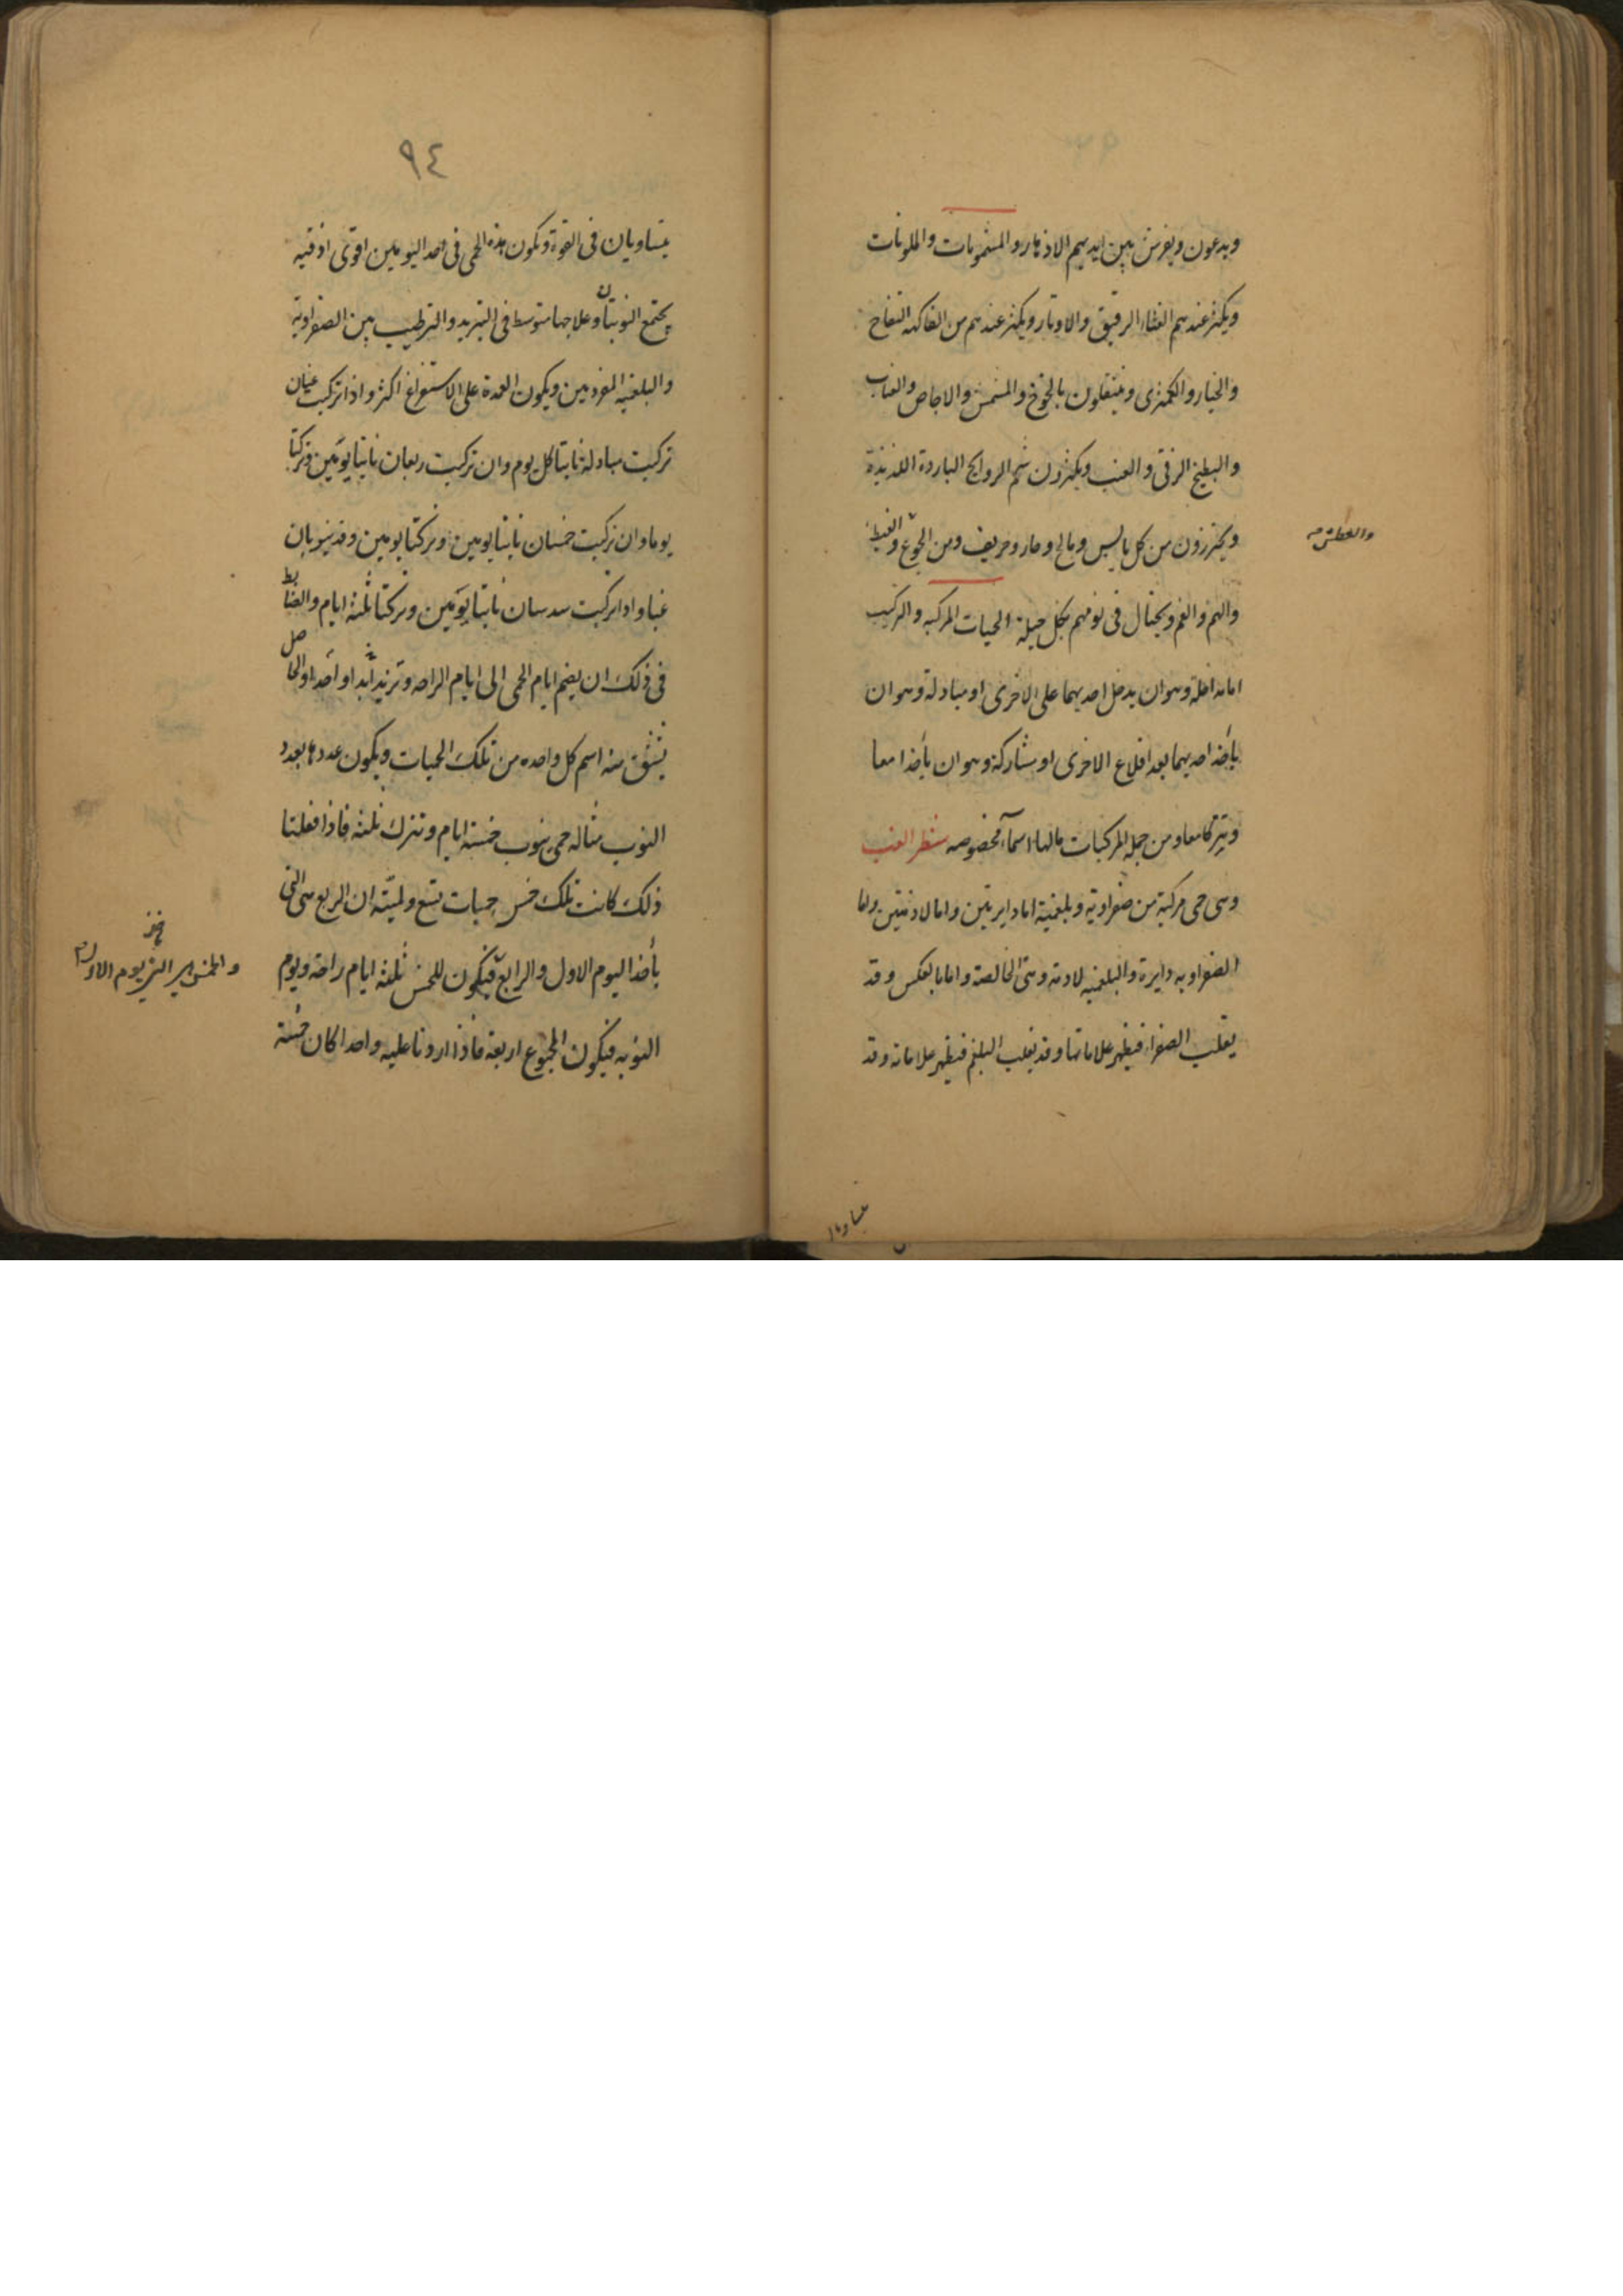 ويدعون ويفرش بين ايديهم الازهار والمشمومات والملونات
ويكثر عندهم الغناء الرقيق والاوتار ويكثر عندهم من الفاكهه التفاح
والخيار والكمثرى ويتنقلون بالخوخ والمشمش والاجاص والعناب
والبطيخ الرقى والعنب ويكثرون شم الروايح الباردة اللذيذة
ويحترزون من كل يابس ومالح وحار وحريف ومن الجوع والغيظ
والعطش
والهم والغم ويحتال فى نومهم بكل حيلة الحميات المركبه والتركيب
اما مداخلة وهو ان يدخل احديهما على الاخرى او مبادلة وهو ان
يأخذ احديهما بعد اقلاع الاخرى او مشاركة وهو ان يأخذا معا
ويتركا معا ومن جمله المركبات مالها اسمآء مخصوصه شطر الغب
وهى حمى مركبة من صفراوية وبلغمية اما دايرتين واما لازمتين واما
الصفراويه دايرة والبلغميه لازمة وهى الخالصة واما بالعكس وقد
يغلب الصفراء فيظهر علاماتها وقد يغلب البلغم فيظهر علاماته وقد
يتساويان
٩٤
يتساويان فى القوة وتكون هذه الحمى فى احد اليومين اقوى اذ فيه
يجتمع النوبتان وعلاجها متوسط فى التبريد والترطيب بين الصفراوية
والبلغميه المفردتين ويكون العمدة على الاستفراغ اكثر واذا تركبت غبان
تركيب مبادلة نابتا كل يوم وان تركبت ربعان نابتا يومين وتركتا
يوما وان تركبت خمسان نابتا يومين وتركتا يومين وقد ينوبان
غبا واذا تركبت سدسان نابتا يومين وتركتا ثلثة ايام والضابط
فى ذلك ان يضم ايام الحمى الى ايام الراحه وتزيد ابدا واحدا والحاصل
يشتق منه اسم كل واحده من تلك الحميات ويكون عددها بعدد
النوب مثاله حمى ينوب خمسة ايام وتترك ثلثه فاذا فعلنا
ذلك كانت تلك خمس حميات تسع ولميته ان الربع هى التى
يأخذ اليوم الاول والرابع فيكون للخمس ثلثه ايام راحة ويوم
والخمس هى التى يوم الاول
النوبه فيكون المجموع اربعة فاذا زدنا عليه واحدا كان خمسة